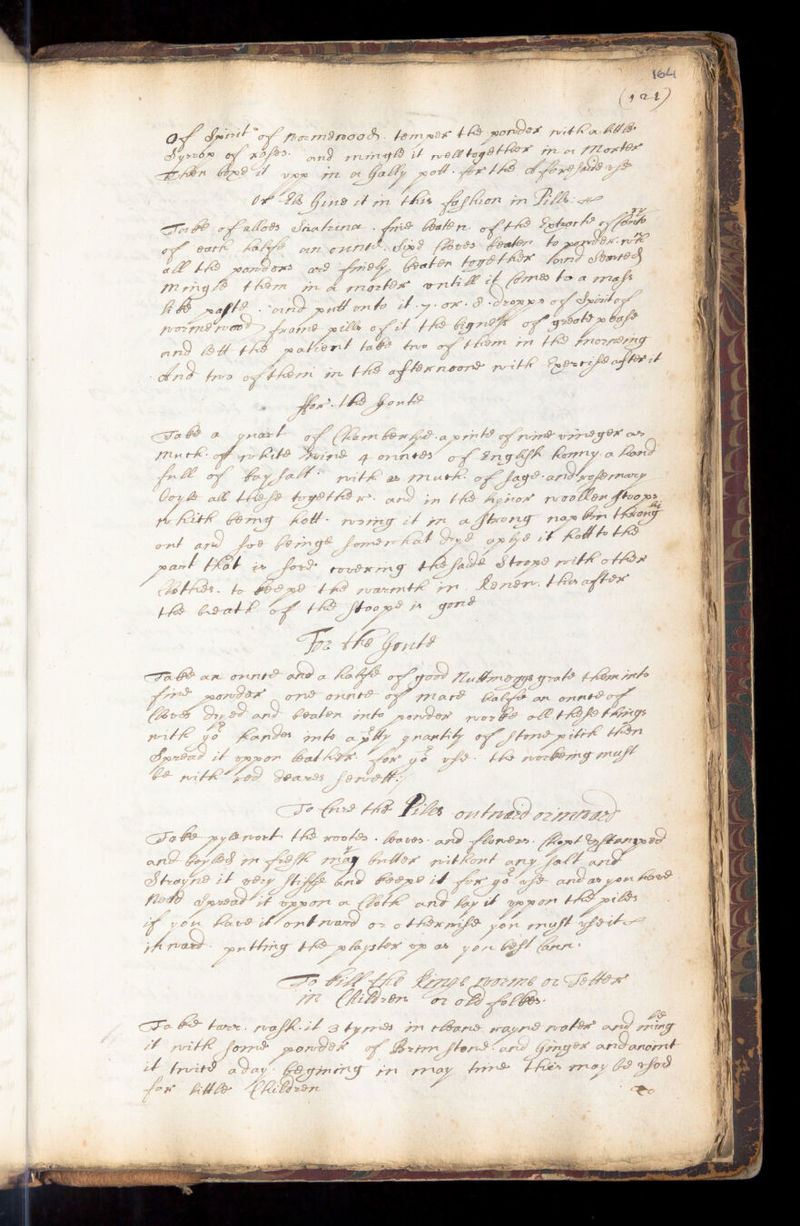 164
(121)
Of Spirit of wormewood. temper the powder with a little
Syrrop of roses. and mingle it well together in a Morter
then keepe it upp in a Gally pott. for the afforesaide use
Or Els Give it in this fashion in Pills
Take of alloes Sucatrina. fine beaten of the Extracte of
of each halfe an ounce. Sixe cloves beaten to powder. wh
all the powders are finely beaten together and Searced
Mingle them in a morter untill it Comes to a mass
like paste. and putt onto it .7. or .8. dropps of Spirit of
wormewood frame pills of it the bigness of greate pease
and lett the patient take two of them in the morneing
And two of them in the afternoone with Exercise after it
ffor the Goute
Take a quart of Chamberlye. a pinte of wine vineger as
Much. of white wine 4 ounces of English honny a hand
full of bay salt. with as much of sage. and rosemary
boyle all these together. and in the liquor woollen stoops
which being hott. wring it in a strong napkin through
out and soe beinge somewhat drye aplye it hott to the
part that is sore covering the saide Stoope with other
Clothes. to keepe the warmth in. Renew. this after
the heath of the stoope is gone
For the Goute
Take an ounce and a halfe of good Nuttmeggs grate them into
fine powder one ounce of mace halfe an ounce of
Cloves dryed and beaten into powder worke all these things
with yor handes into a prtty quantity of stone pitch then
Spread it uppon leather for yor use. the workeing must
be with red deares sewett.
To Cure the Piles outward or inward
Take pylewort the rootes. leaves. and flowers. Chopt & stamped
and boyled in fresh may butter without any salt and
Strayne it very stiffe and keepe it for yor use and as you have
Need Spread it uppon a Cloth and lay it uppon the piles
if you have it outward or otherwise you must use it
inward. putting the playster up as you best Cann.
To kill the Ringe worme or Tetter
in Children or old folkes.
Take tarr. wash. it 3 tymes in cleane rayne water and
it with some powder of Brimstone. and Ginger and anoint
it twice a day. begining in may time this may be used
for little Children